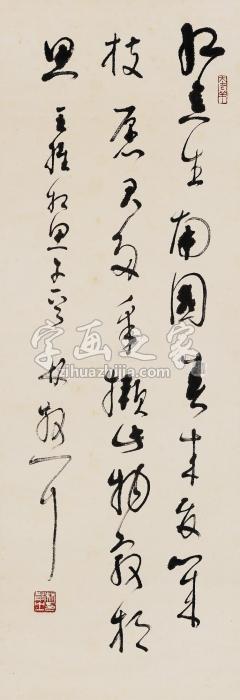 红豆生南國春来发幾
枝愿君多采擷此物最相
思 王維相思子 林散耳
字画之家
zihuazhijia.com